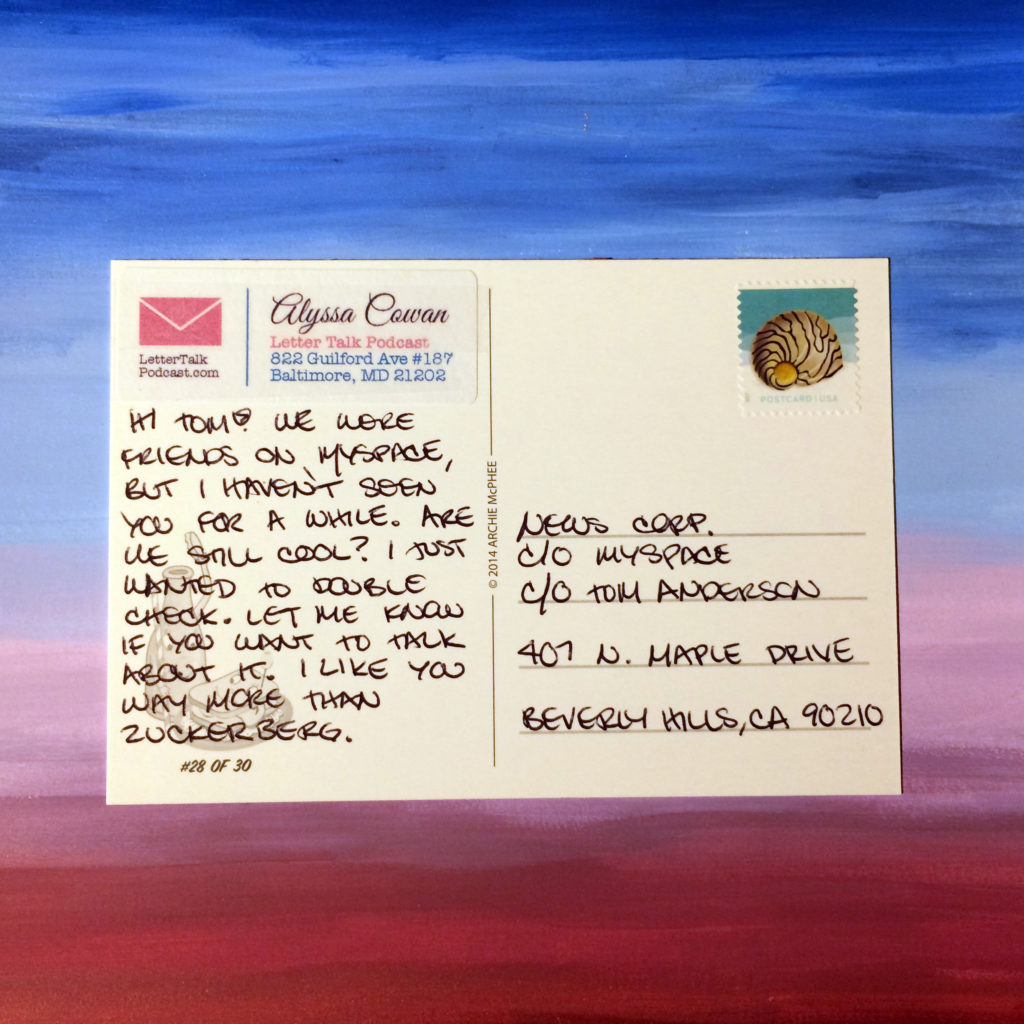 LetterTalk
Podcast.com
Alyssa Cowan
Letter Talk Podcast
822 Guilford Ave #187
Baltimore, MD 21202
HI TOM! WE WERE
FRIENDS ON MYSPACE,
BUT I HAVEN'T SEEN
YOU FOR A WHILE. ARE
WE STILL COOL? I JUST
WANTED TO DOUBLE
CHECK. LET ME KNOW
IF YOU WANT TO TALK
ABOUT IT. I LIKE YOU
WAY MORE THAN
ZUCKERBERG.
#28 OF 30
© 2014 ARCHIE McPHEE
POSTCARD | USA
NEWS CORP.
C/O MYSPACE
C/O TOM ANDERSON
407 N. MAPLE DRIVE
BEVERLY HILLS, CA 90210